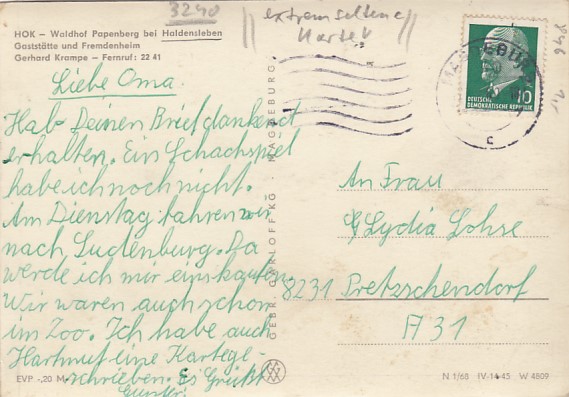 3240
extrem seltene
Karte!
HOK – Waldhof Papenberg bei Haldensleben
Gaststätte und Fremdenheim
Gerhard Krampe – Fernruf: 22 41
Liebe Oma.
Hab Deinen Brief dankend
erhalten. Ein Schachspiel
habe ich noch nicht.
Am Dienstag fahren wir
nach Ludtenburg. Da
werde ich mir eins kaufen
Wir waren auch schon
im Zoo. Ich habe auch
Hartmut eine Kartege-
schrieben. Es Grüßt
Gunter.
EVP -,20 M
GEBR. GARLOFF KG · MAGDEBURG
10
DEUTSCHE
DEMOKRATISCHE REPUBLIK
c
An Frau
Lydia Lohse
8231 Pretzschendorf
A 31
N 1/68 IV-14-45 W 4809